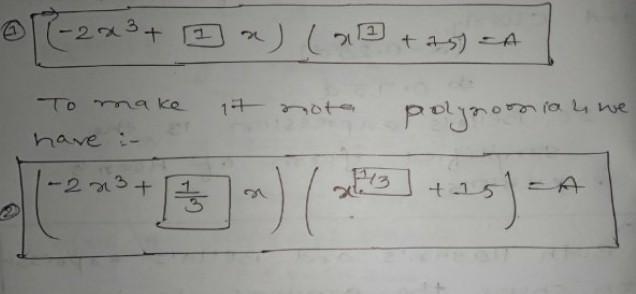 ① (-2x³ + [1] x) (x^[1] + 15) = A
To make it not a polynomial, we
have :-
② (-2x³ + [1/3] x) (x^[1/3] + 15) = A